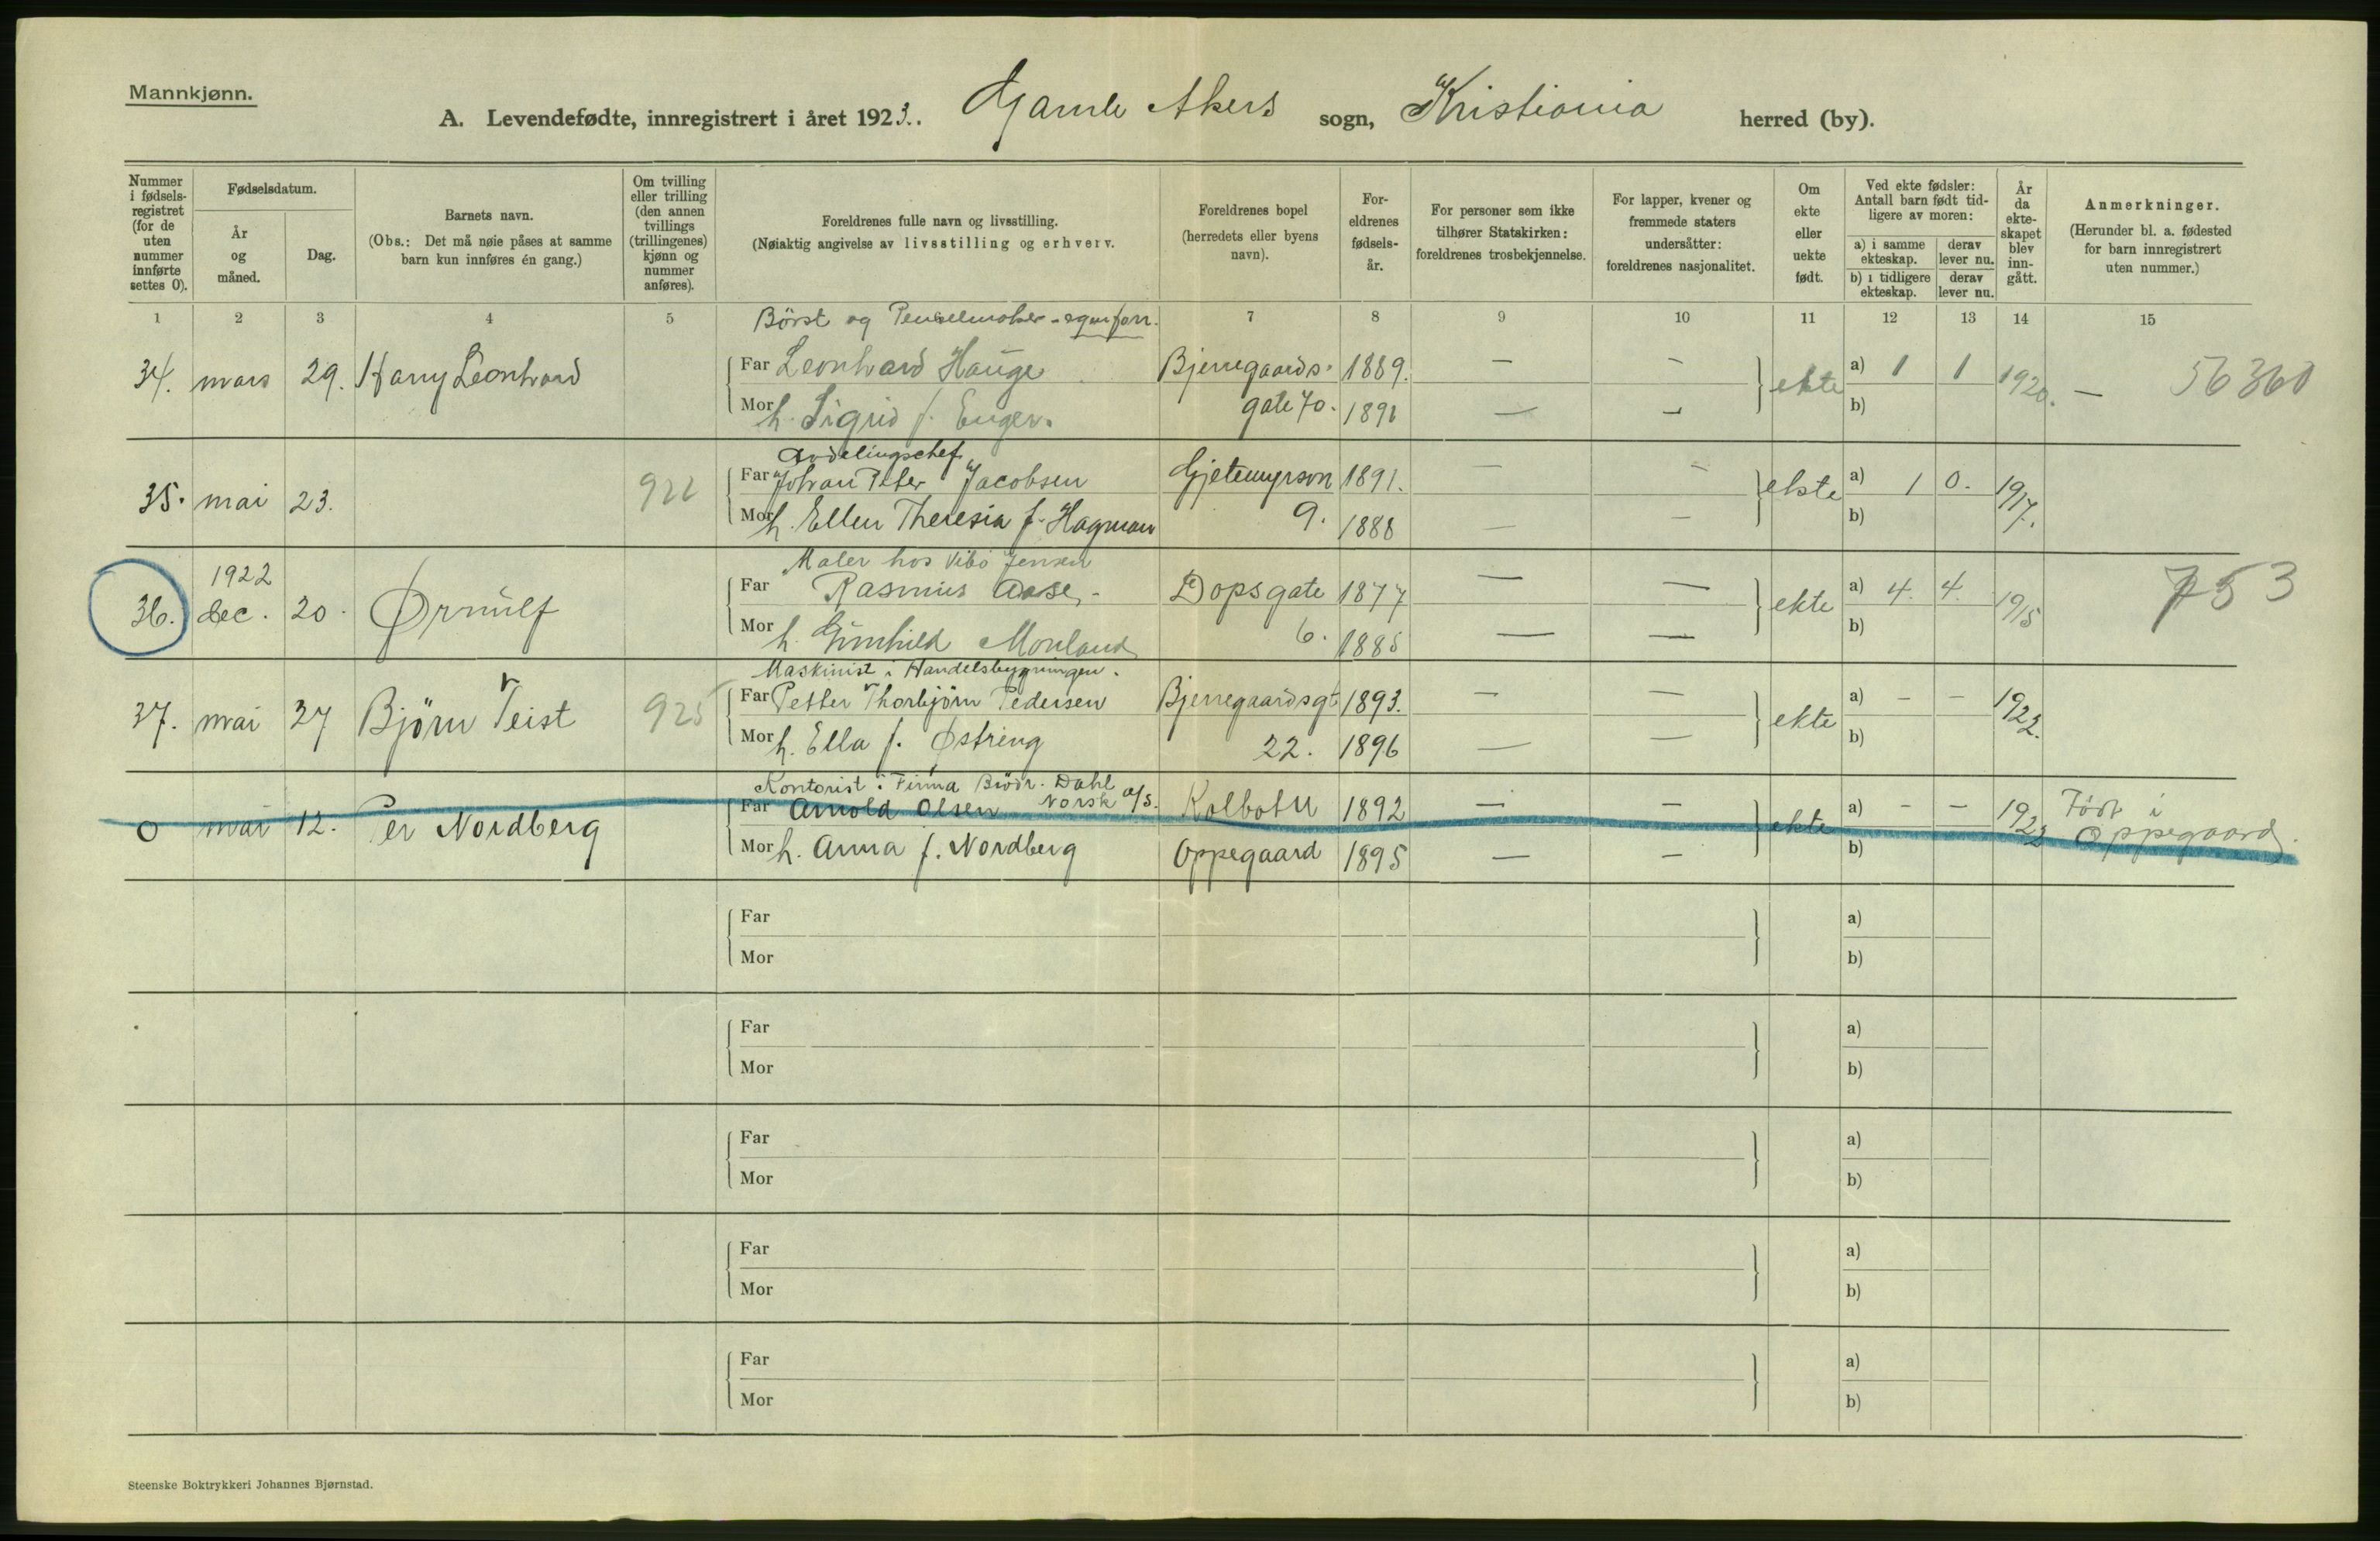 Mannkjønn.
A. Levendefødte, innregistrert i året 1923. Gamle Akers sogn, Kristiania herred (by).
Nummer i fødselsregistret (for de uten nummer innførte settes 0).
Fødselsdatum.
År og måned.
Dag.
Barnets navn.
(Obs.: Det må nøie påses at samme barn kun innføres én gang.)
Om tvilling eller trilling (den annen tvillings (trillingenes) kjønn og nummer anføres).
Foreldrenes fulle navn og livsstilling.
(Nøiaktig angivelse av livsstilling og erhverv.
Foreldrenes bopel (herredets eller byens navn).
Foreldrenes fødselsår.
For personer som ikke tilhører Statskirken: foreldrenes trosbekjennelse.
For lapper, kvener og fremmede staters undersåtter: foreldrenes nasjonalitet.
Om ekte eller uekte født.
Ved ekte fødsler: Antall barn født tidligere av moren:
a) i samme ekteskap. derav lever nu.
b) i tidligere ekteskap. derav lever nu.
År da ekteskapet blev inngått.
Anmerkninger.
(Herunder bl. a. fødested for barn innregistrert uten nummer.)
1 2 3 4 5 7 8 9 10 11 12 13 14 15
Börst og Penselmaker - egen forr.
34. mars 29. Harry Leonhard Far Leonhard Hauge Bjerregaards- 1889. — — ekte a) 1 1 1920. — 56360
Mor h. Sigrid f. Enger. gate 70. 1891 — — b)
Avdelingschef
35. mai 23. 922 Far Johan Peter Jacobsen Gjetemyrsvn 1891. — — ekte a) 1 0. 1917.
Mor h. Ellen Theresia f. Hagman 9. 1888 — — b)
Maler hos Vibo Jensen
36. 1922 dec. 20. Ørnulf Far Rasmus Aase. Dops gate 1877 — — ekte a) 4. 4. 1915 753
Mor h. Gunhild Monland 6. 1885 — — b)
Maskinist i Handelsbygningen.
37. mai 27 Björn Teist 925 Far Petter Thorbjörn Pedersen Bjerregaardsgt 1893. — — ekte a) - - 1922.
Mor h. Ella f. Østring 22. 1896 — — b)
Kontorist i Firma Brödr. Dahl Norsk a/s.
0 mai 12. Per Nordberg Far Arnold Olsen Kolbotn 1892 — — ekte a) - - 1922 Födt i Oppegaard.
Mor h. Anna f. Nordberg Oppegaard 1895 — — b)
Far a)
Mor b)
Far a)
Mor b)
Far a)
Mor b)
Far a)
Mor b)
Far a)
Mor b)
Steenske Boktrykkeri Johannes Bjørnstad.